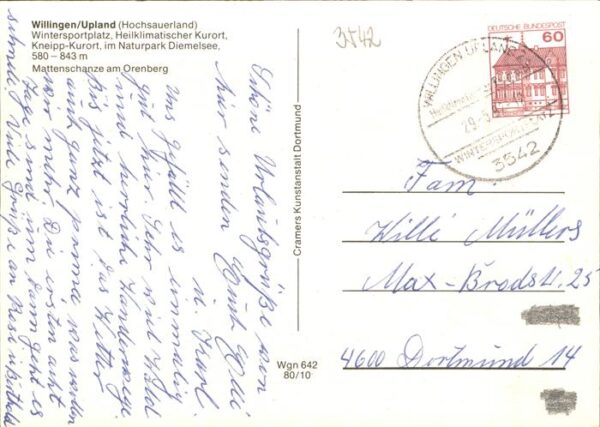 Willingen/Upland (Hochsauerland)
Wintersportplatz, Heilklimatischer Kurort,
Kneipp-Kurort, im Naturpark Diemelsee,
580 – 843 m
Mattenschanze am Orenberg
3542
DEUTSCHE BUNDESPOST
60
WILLINGEN UPLAND
29.
WINTERSPORTPLATZ
3542
Schöne Urlaubsgrüße von
hier senden Euch
u.
Uns gefällt es einmalig
gut hier. Sehr viel Wald
und herrliche Wanderwege.
Bis jetzt ist das Wetter
auch ganz prima was wollen
wir mehr? Die ersten acht
Tage sind um dann geht es
schnell. Viele Grüße an
Cramers Kunstanstalt Dortmund
Wgn 642
80/10
Fam.
Willi Müllers
Max-Brodstr. 25
4600 Dortmund 14